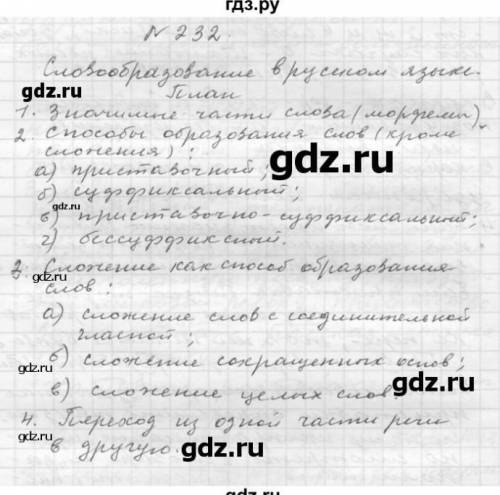 гдз.ру
№ 232.
Словообразование в русском языке.
План
1. Значимые части слова (морфемы)
2. Способы образования слов (кроме
сложения):
а) приставочный;
б) суффиксальный;
в) приставочно-суффиксальный;
г) бессуффиксный.
3. Сложение как способ образования
слов:
а) сложение слов с соединительной
гласной;
б) сложение сокращенных основ;
в) сложение целых слов.
4. Переход из одной части речи
в другую.
gdz.ru
gdz.ru
gdz.ru
gdz.ru
gdz.ru
gdz.ru
gdz.ru